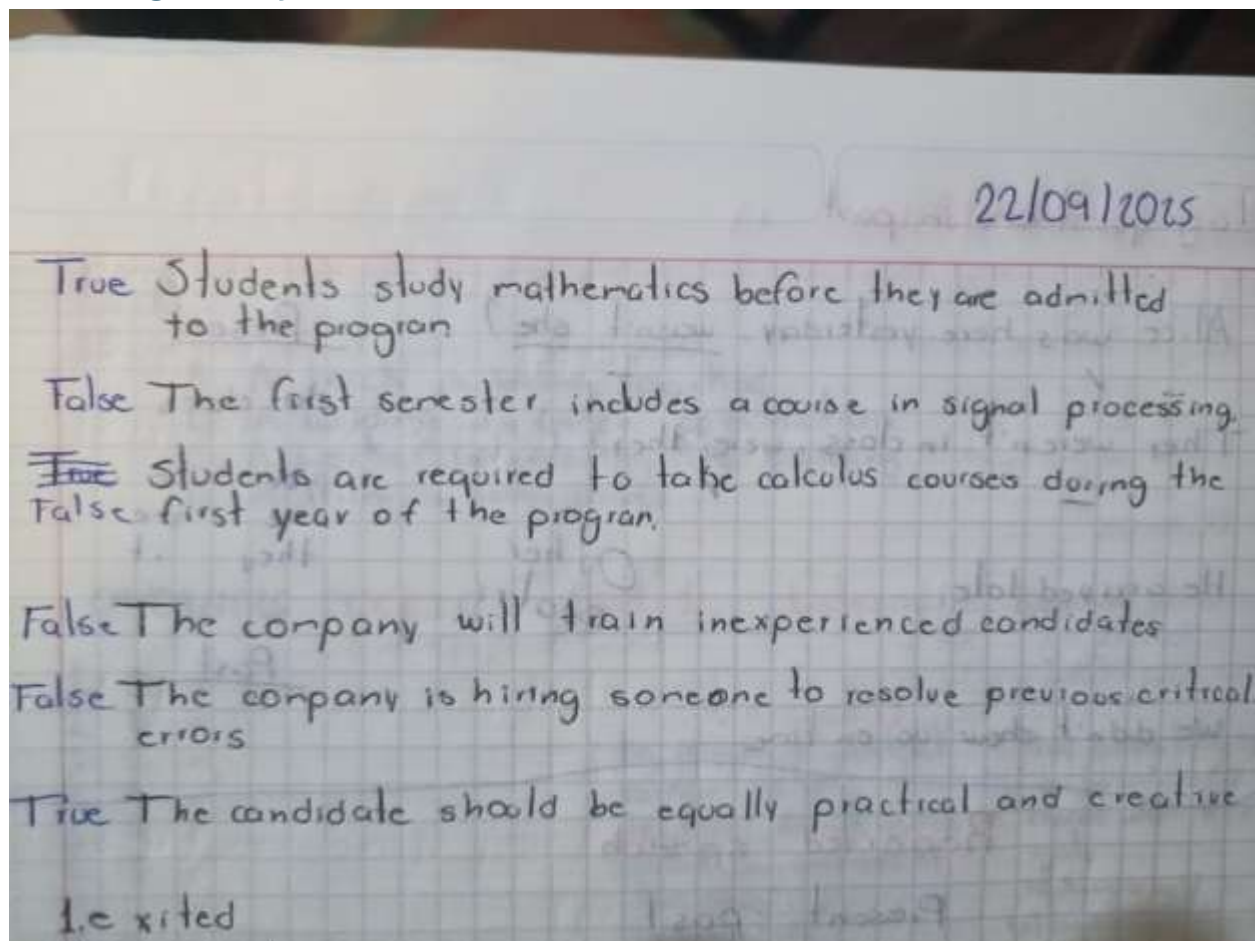 22/09/2025
True Students study mathematics before they are admitted
to the program
False The first semester includes a course in signal processing.
True Students are required to take calculus courses during the
False first year of the program.
False The company will train inexperienced candidates
False The company is hiring someone to resolve previous critical
errors
True The candidate should be equally practical and creative
1.e xited